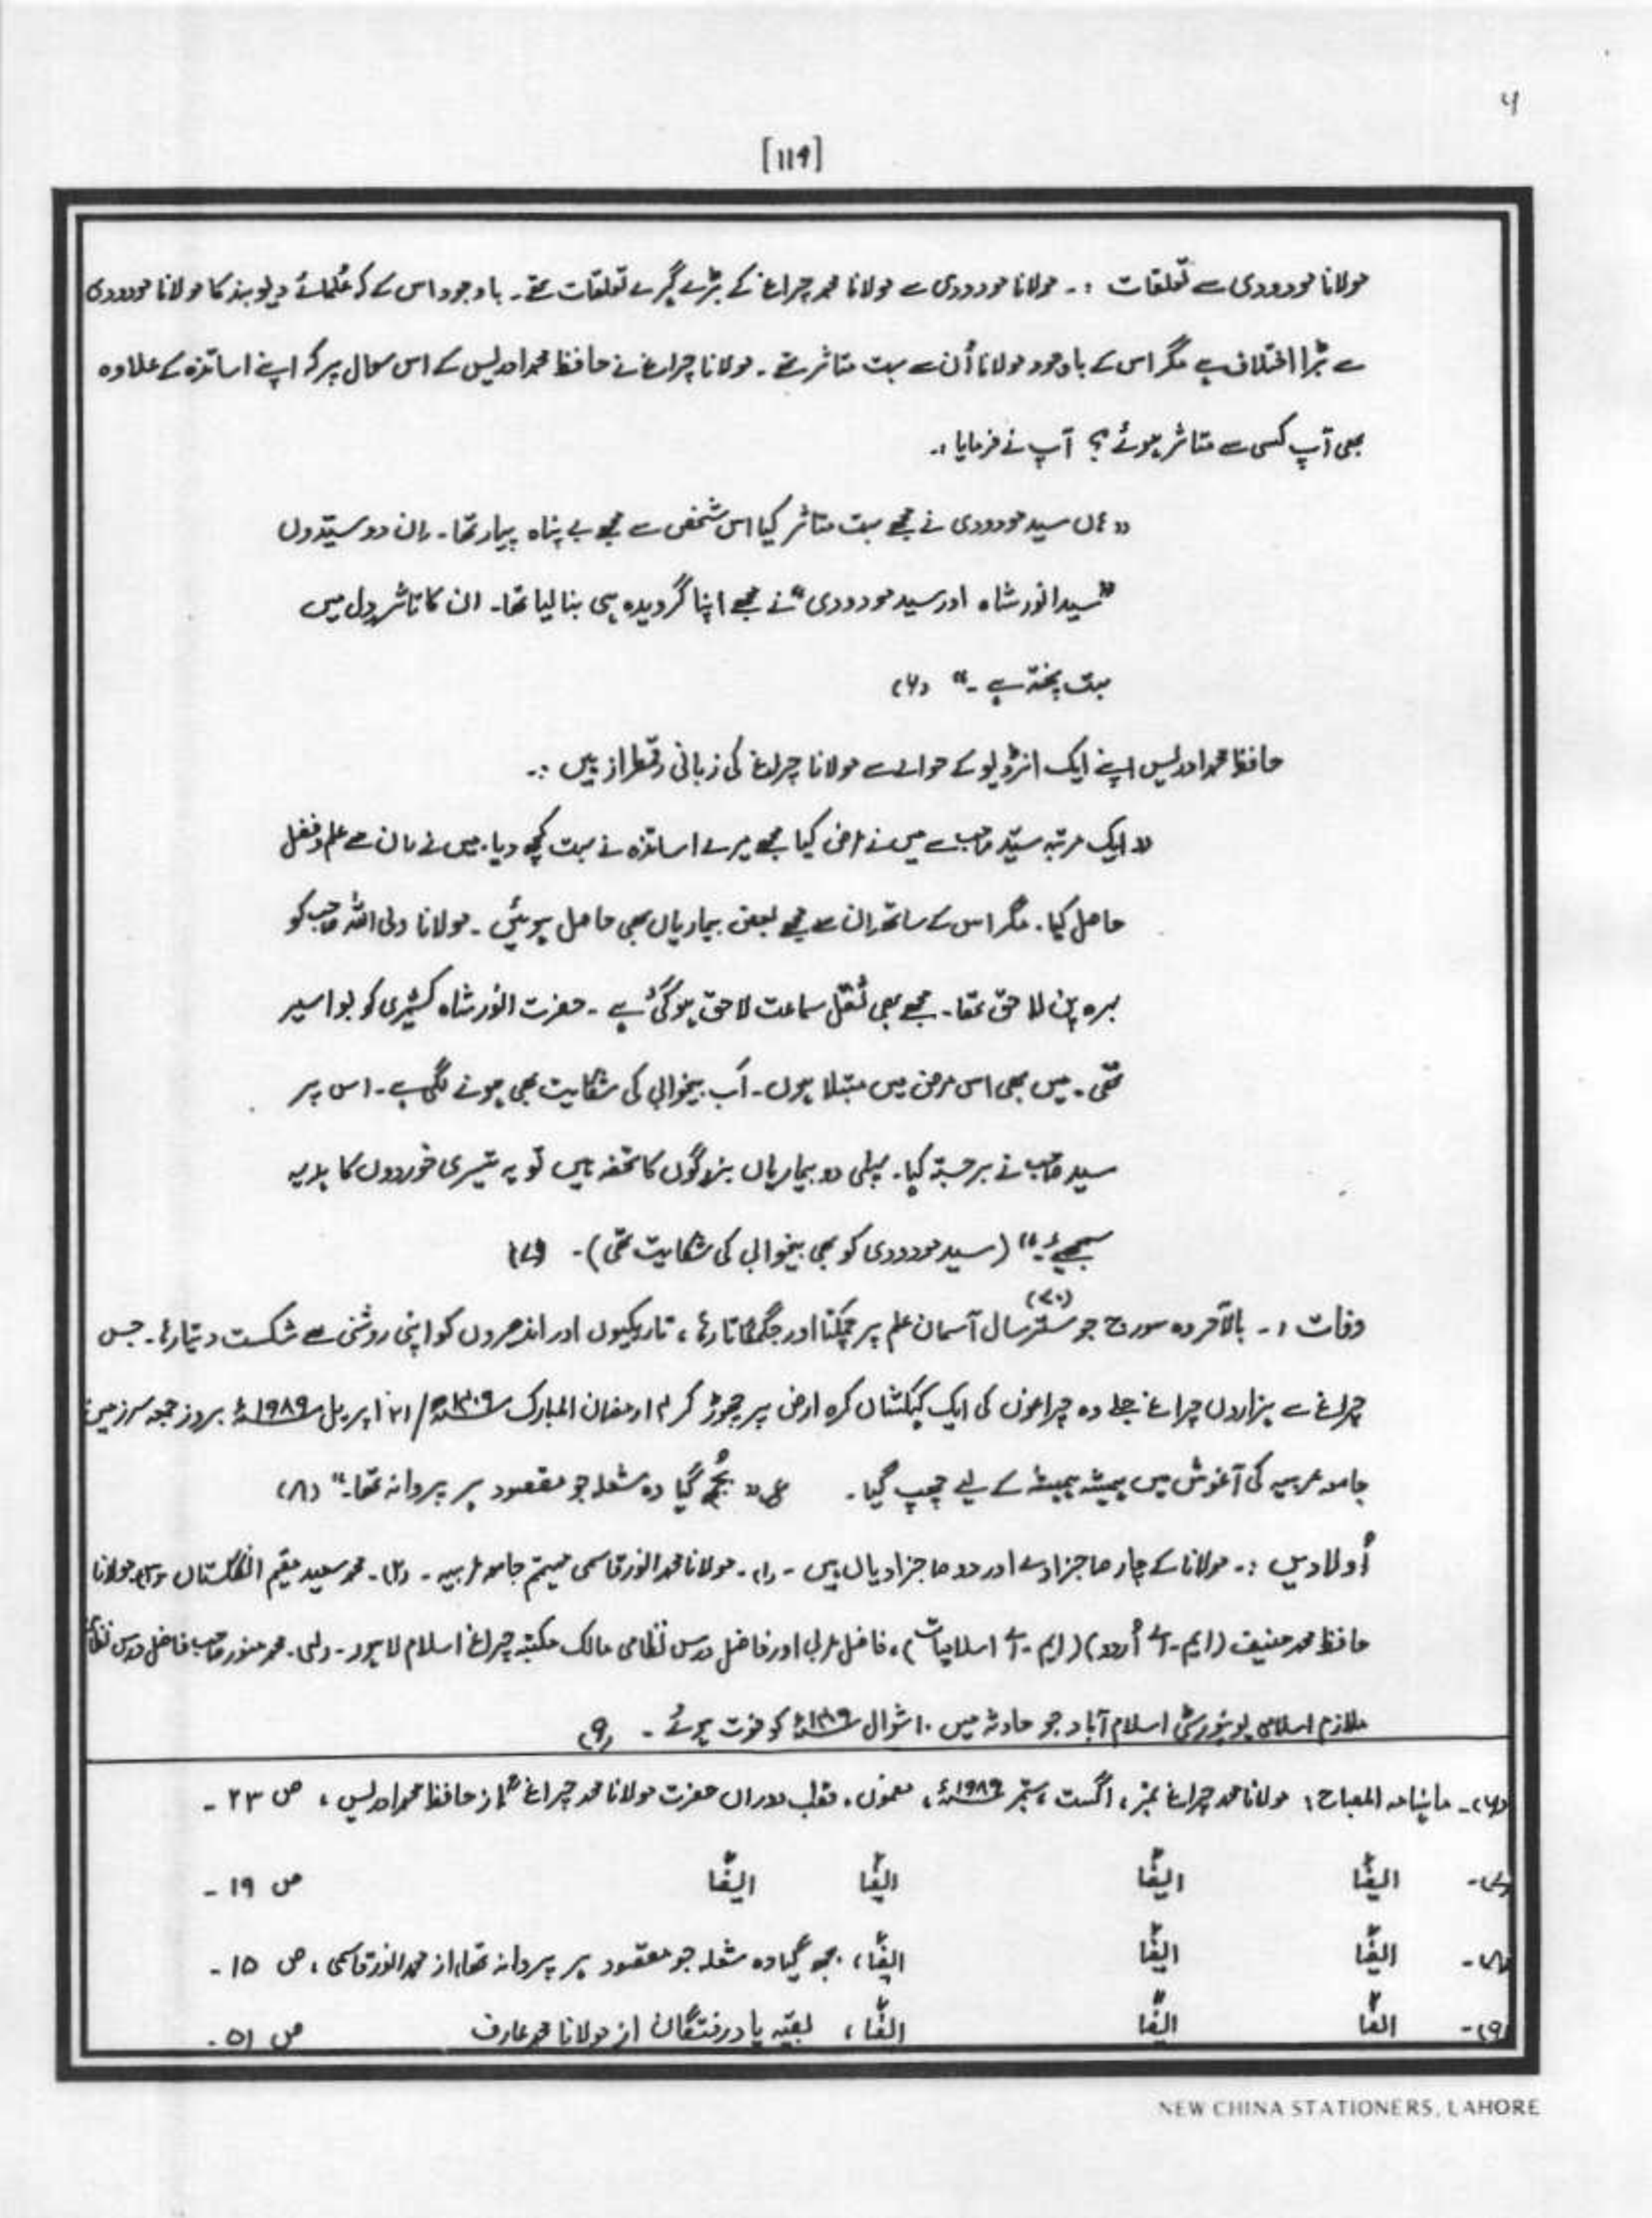 ۶
[119]
مولانا مودودی سے تعلقات :۔ مولانا مودودی سے مولانا محمد چراغ کے بڑے گہرے تعلقات تھے۔ باوجود اس کے کہ علمائے دیوبند کا مولانا مودودی
سے بڑا اختلاف ہے مگر اس کے باوجود مولانا اُن سے بہت متاثر تھے۔ مولانا چراغ نے حافظ محمد ادریس کے اس سوال پر کہ اپنے اساتذہ کے علاوہ
بھی آپ کسی سے متاثر ہوئے؟ آپ نے فرمایا :۔
" ہاں سید مودودی نے مجھے بہت متاثر کیا اس شخص سے مجھے بے پناہ پیار تھا۔ اِن دو سیّدوں
"سید انور شاہ اور سید مودودی" نے مجھے اپنا گرویدہ ہی بنا لیا تھا۔ ان کا تاثر دل میں
بہت پختہ ہے۔" (۶)
حافظ محمد ادریس اپنے ایک انٹرویو کے حوالے سے مولانا چراغ کی زبانی رقمطراز ہیں :۔
" ایک مرتبہ سیّد صاحب سے میں نے عرض کیا مجھے میرے اساتذہ نے بہت کچھ دیا۔ میں نے ان سے علم و فضل
حاصل کیا۔ مگر اس کے ساتھ ان سے مجھے بعض بیماریاں بھی حاصل ہوئیں۔ مولانا ولی اللہ صاحب کو
بہرہ پن لاحق تھا۔ مجھے بھی ثقل سماعت لاحق ہو گئی ہے۔ حضرت انور شاہ کشمیری کو بواسیر
تھی۔ میں بھی اس مرض میں مبتلا ہوں۔ اَب بیخوابی کی شکایت بھی ہونے لگی ہے۔ اس پر
سید صاحب نے برجستہ کہا۔ پہلی دو بیماریاں بزرگوں کا تحفہ ہیں تو یہ تیسری خوردوں کا ہدیہ
سمجھیے۔" (سید مودودی کو بھی بیخوابی کی شکایت تھی)۔ (۷)
وفات :۔ بالآخر وہ سورج جو ستر (۷۰) سال آسمان علم پر چمکتا اور جگمگاتا رہا، تاریکیوں اور اندھیروں کو اپنی روشنی سے شکست دیتا رہا۔ جس
چراغ سے ہزاروں چراغ جلے وہ چراغوں کی ایک کہکشاں کرہ ارض پر چھوڑ کر ۱۴ رمضان المبارک ۱۴۰۹ھ / ۲۱ اپریل ۱۹۸۹ء بروز جمعہ سرزمین
جامعہ عربیہ کی آغوش میں ہمیشہ ہمیشہ کے لیے چھپ گیا۔ ع " بُجھ گیا وہ شعلہ جو مقصود ہر پروانہ تھا۔" (۸)
اُولادیں :۔ مولانا کے چار صاجزادے اور دو صاجزادیاں ہیں۔ (۱)۔ مولانا محمد انور قاسمی مہتمم جامعہ عربیہ۔ (۲)۔ محمد سعید مقیم انگلستان (۳) مولانا
حافظ محمد حنیف (ایم۔اے اُردو) (ایم۔اے اسلامیات)، فاضل عربی اور فاضل درس نظامی مالک مکتبہ چراغ اسلام لاہور۔ (۴)۔ محمد منور صاحب فاضل درس نظامی
ملازم اسلامی یونیورسٹی اسلام آباد جو حادثہ میں ۱۰ شوال کو فوت ہوئے۔ (۹)
(۶)۔ ماہنامہ المصباح؛ مولانا محمد چراغ نمبر، اگست، ستمبر ۱۹۸۹ء، مضمون، قطب دوراں حضرت مولانا محمد چراغؒ از حافظ محمد ادریس، ص ۲۳۔
(۷)۔ ایضًا ایضًا ایضًا ایضًا ص ۱۹۔
(۸)۔ ایضًا ایضًا ایضًا، بجھ گیا وہ شعلہ جو مقصود ہر پروانہ تھا، از محمد انور قاسمی، ص ۱۵۔
(۹)۔ ایضًا ایضًا ایضًا، بقیّہ یاد رفتگان از مولانا محمد عارف ص ۵۱۔
NEW CHINA STATIONERS, LAHORE